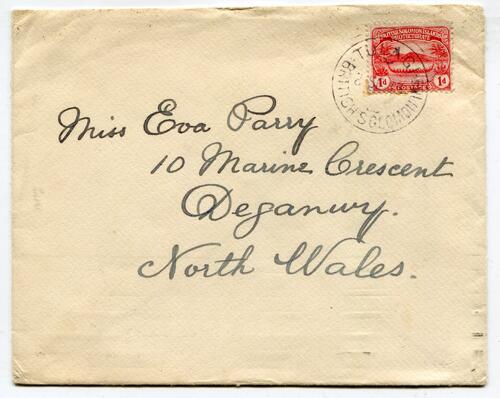 BRITISH SOLOMON ISLANDS
PROTECTORATE
1d POSTAGE 1d
BRITISH SOLOMON
Miss Eva Parry
10 Marine Crescent
Deganwy.
North Wales.